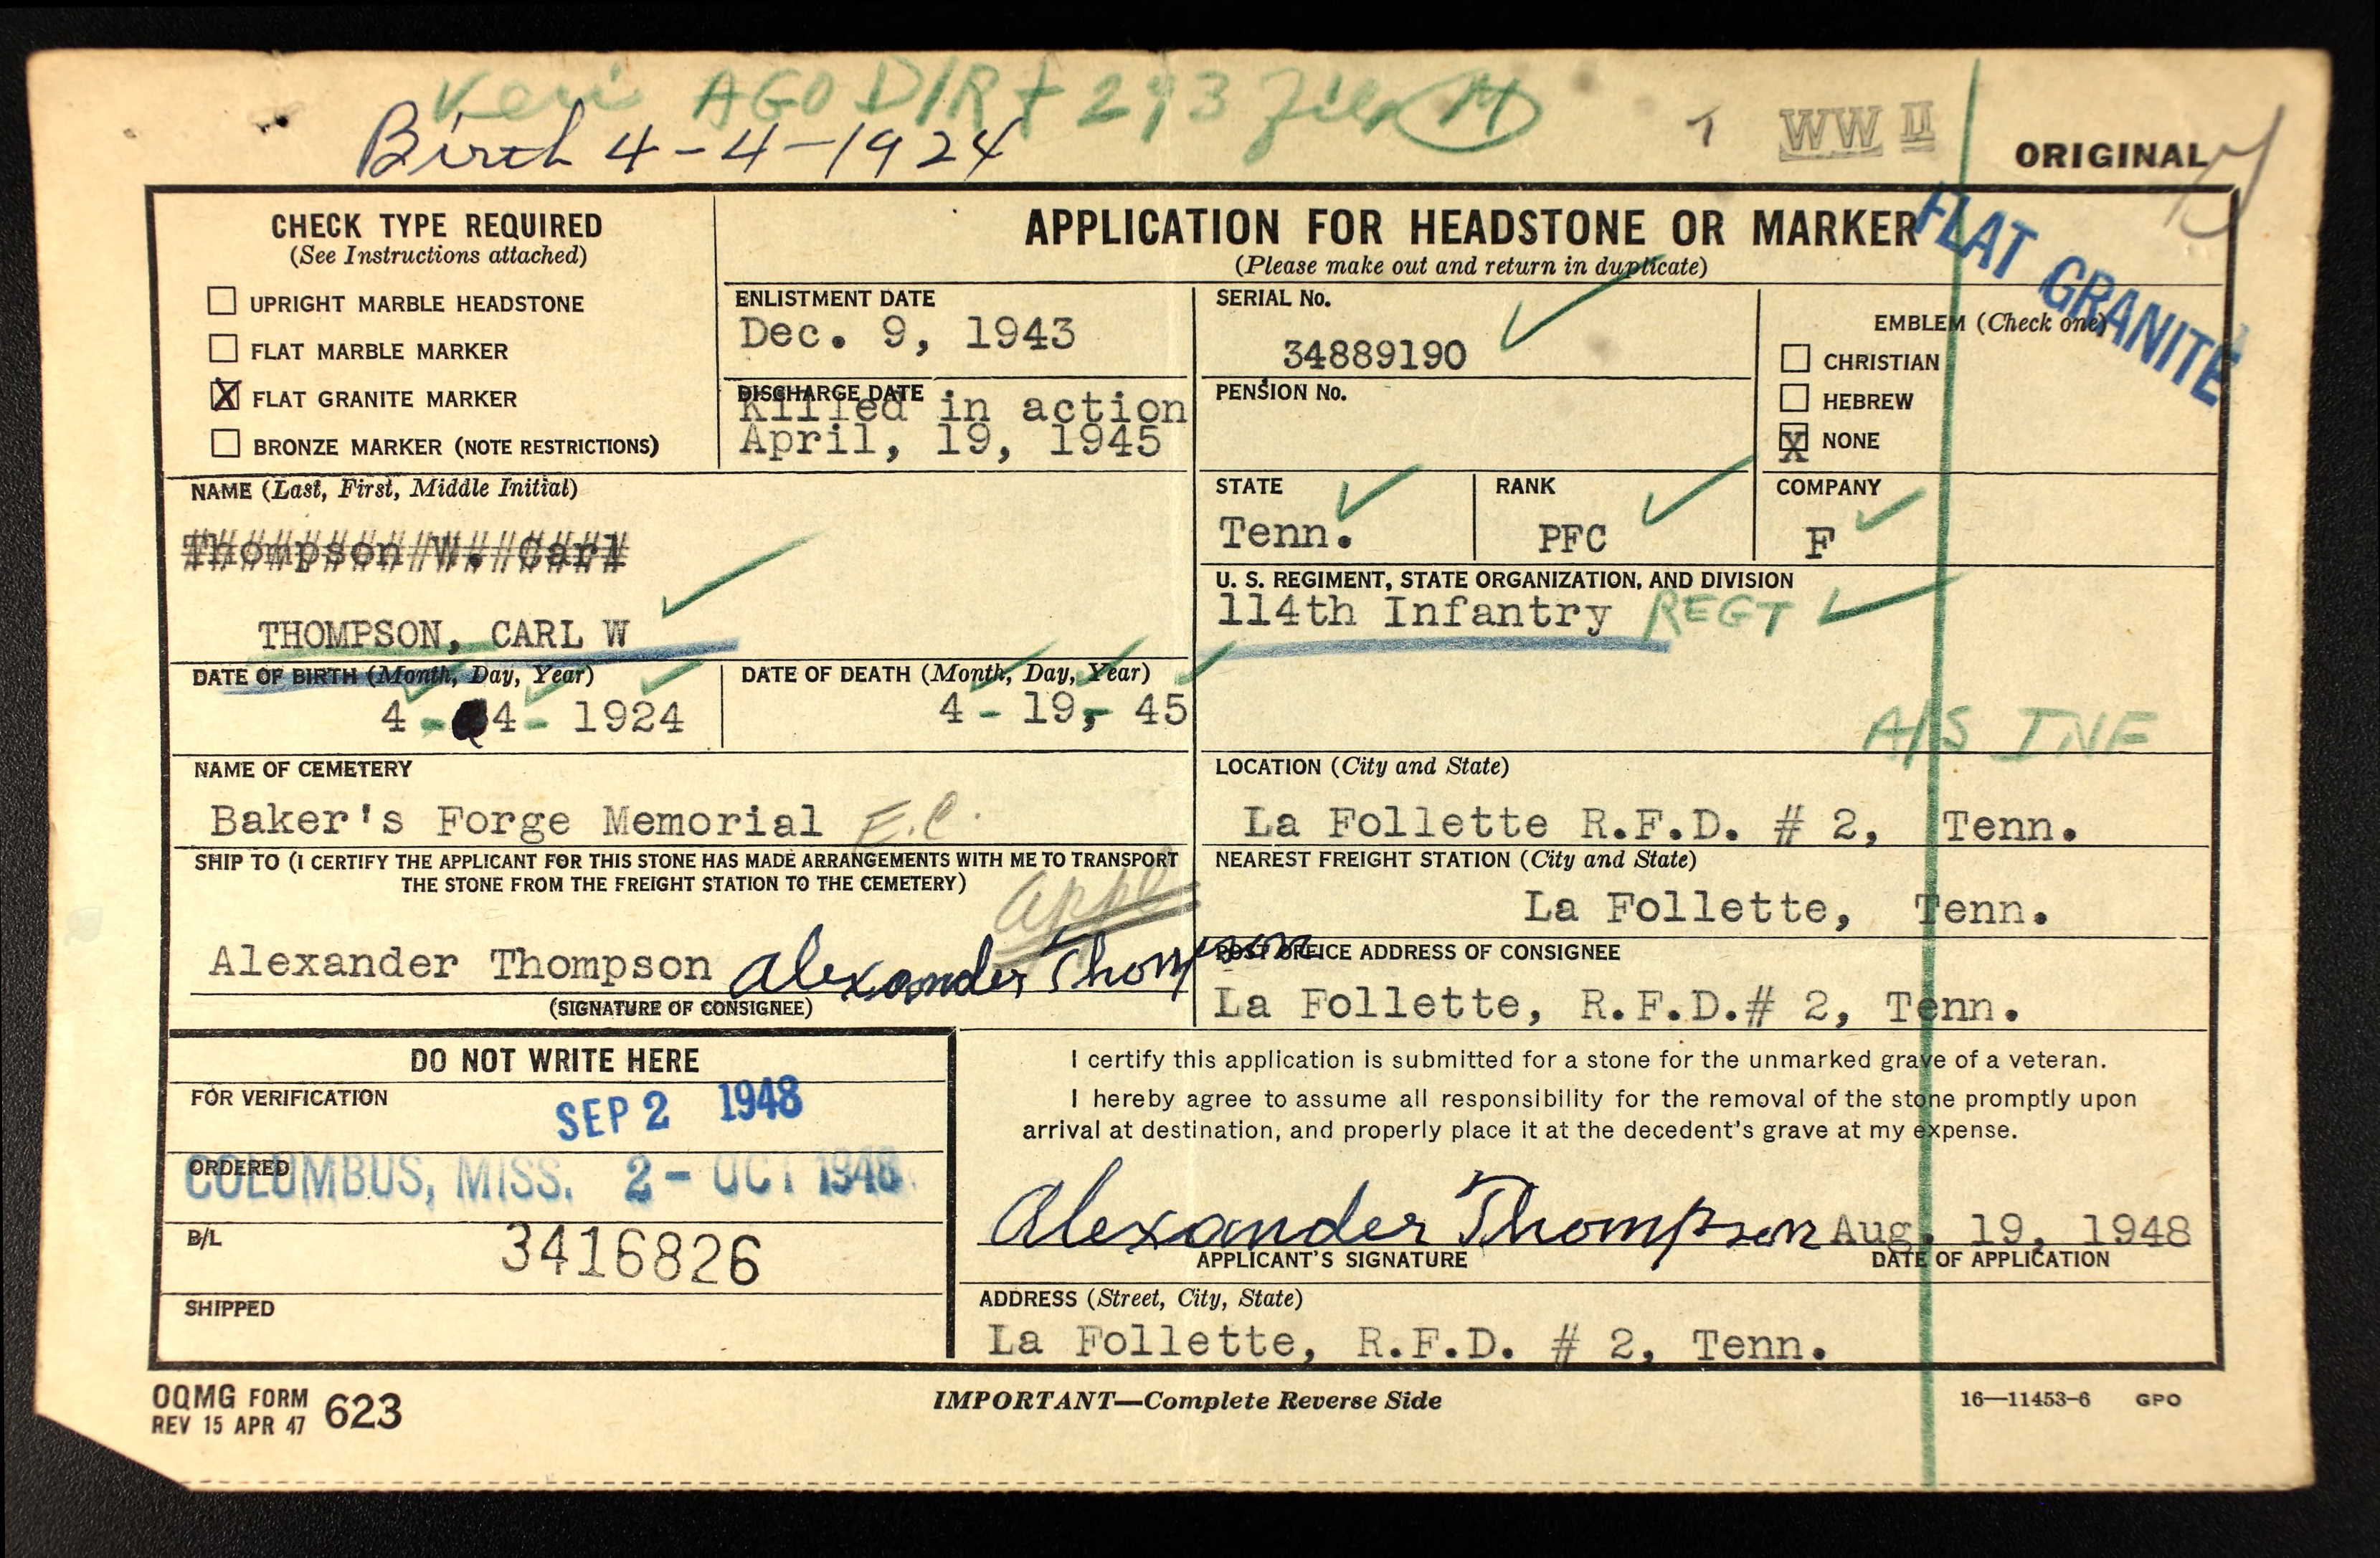 Veri AGO DIR + 293 file M
Birth 4-4-1924
WW II
ORIGINAL
FLAT GRANITE
CHECK TYPE REQUIRED
(See Instructions attached)
UPRIGHT MARBLE HEADSTONE
FLAT MARBLE MARKER
X FLAT GRANITE MARKER
BRONZE MARKER (NOTE RESTRICTIONS)
APPLICATION FOR HEADSTONE OR MARKER
(Please make out and return in duplicate)
ENLISTMENT DATE
Dec. 9, 1943
DISCHARGE DATE
Killed in action
April, 19, 1945
SERIAL No.
34889190
PENSION No.
EMBLEM (Check one)
CHRISTIAN
HEBREW
X NONE
NAME (Last, First, Middle Initial)
Thompson W. Carl
THOMPSON, CARL W
STATE
Tenn.
RANK
PFC
COMPANY
F
U. S. REGIMENT, STATE ORGANIZATION, AND DIVISION
114th Infantry REGT
A/S INF
DATE OF BIRTH (Month, Day, Year)
4 - 4 - 1924
DATE OF DEATH (Month, Day, Year)
4 - 19,- 45
NAME OF CEMETERY
Baker's Forge Memorial E.C.
LOCATION (City and State)
La Follette R.F.D. # 2, Tenn.
SHIP TO (I CERTIFY THE APPLICANT FOR THIS STONE HAS MADE ARRANGEMENTS WITH ME TO TRANSPORT
THE STONE FROM THE FREIGHT STATION TO THE CEMETERY)
appl
Alexander Thompson Alexander Thompson
(SIGNATURE OF CONSIGNEE)
NEAREST FREIGHT STATION (City and State)
La Follette, Tenn.
POST OFFICE ADDRESS OF CONSIGNEE
La Follette, R.F.D.# 2, Tenn.
DO NOT WRITE HERE
FOR VERIFICATION
SEP 2 1948
ORDERED
COLUMBUS, MISS. 2 - OCT 1948
B/L
3416826
SHIPPED
I certify this application is submitted for a stone for the unmarked grave of a veteran.
I hereby agree to assume all responsibility for the removal of the stone promptly upon
arrival at destination, and properly place it at the decedent's grave at my expense.
Alexander Thompson Aug. 19, 1948
APPLICANT'S SIGNATURE DATE OF APPLICATION
ADDRESS (Street, City, State)
La Follette, R.F.D. # 2, Tenn.
OQMG FORM 623
REV 15 APR 47
IMPORTANT—Complete Reverse Side
16—11453-6 GPO